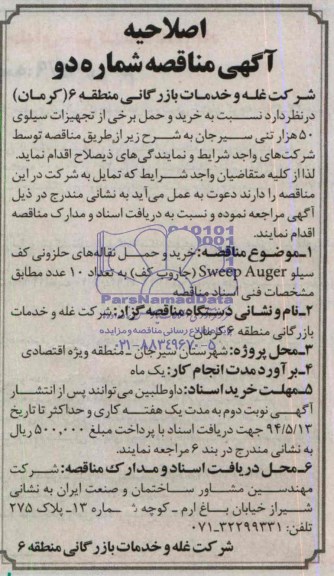 اصلاحیه
آگهی مناقصه شماره دو
شرکت غله و خدمات بازرگانی منطقه ۶ (کرمان)
درنظر دارد نسبت به خرید و حمل برخی از تجهیزات سیلوی
۵۰ هزار تنی سیرجان به شرح زیر از طریق مناقصه توسط
شرکت‌های واجد شرایط و نمایندگی‌های ذیصلاح اقدام نماید.
لذا از کلیه متقاضیان واجد شرایط که تمایل به شرکت در این
مناقصه را دارند دعوت به عمل می‌آید به نشانی مندرج در ذیل
آگهی مراجعه نموده و نسبت به دریافت اسناد و مدارک مناقصه
اقدام نمایند.
۱ـ موضوع مناقصه: خرید و حمل نقاله‌های حلزونی کف
سیلو Sweep Auger (جاروب کف) به تعداد ۱۰ عدد مطابق
مشخصات فنی اسناد مناقصه
ParsNamadData
۲ـ نام و نشانی دستگاه مناقصه گزار: شرکت غله و خدمات
بازرگانی منطقه ۶ کرمان
پایگاه اطلاع رسانی مناقصه و مزایده
۰۲۱-۸۸۳۴۹۶۷۰-۵
۳ـ محل پروژه: شهرستان سیرجان ـ منطقه ویژه اقتصادی
۴ـ برآورد مدت انجام کار: یک ماه
۵ـ مهلت خرید اسناد: داوطلبین می‌توانند پس از انتشار
آگهی نوبت دوم به مدت یک هفته کاری و حداکثر تا تاریخ
۹۴/۵/۱۳ جهت دریافت اسناد با پرداخت مبلغ ۵۰۰,۰۰۰ ریال
به نشانی مندرج در بند ۶ مراجعه نمایند.
۶ـ محل دریافت اسناد و مدارک مناقصه: شرکت
مهندسین مشاور ساختمان و صنعت ایران به نشانی
شیراز خیابان باغ ارم ـ کوچه شماره ۱۳ـ پلاک ۲۷۵
تلفن: ۳۲۲۹۹۳۳۱-۰۷۱
شرکت غله و خدمات بازرگانی منطقه ۶